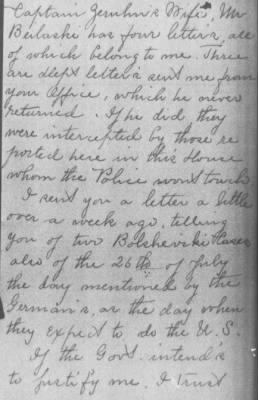 Captain Zeruhn's Wife, Mr
Beilaski has four letters, all
of which belong to me. Three
are dept letters sent me from
your Office, which he never
returned. If he did they
were intercepted by those re
ported here in this House
whom the Police wont touch
I sent you a letter a little
over a week ago, telling
you of two Bolsheviski
also of the 26th of July
the day mentioned by the
Germans, as the day when
they expect to do the U.S.
If the Govt. intend's
to justify me, I trust